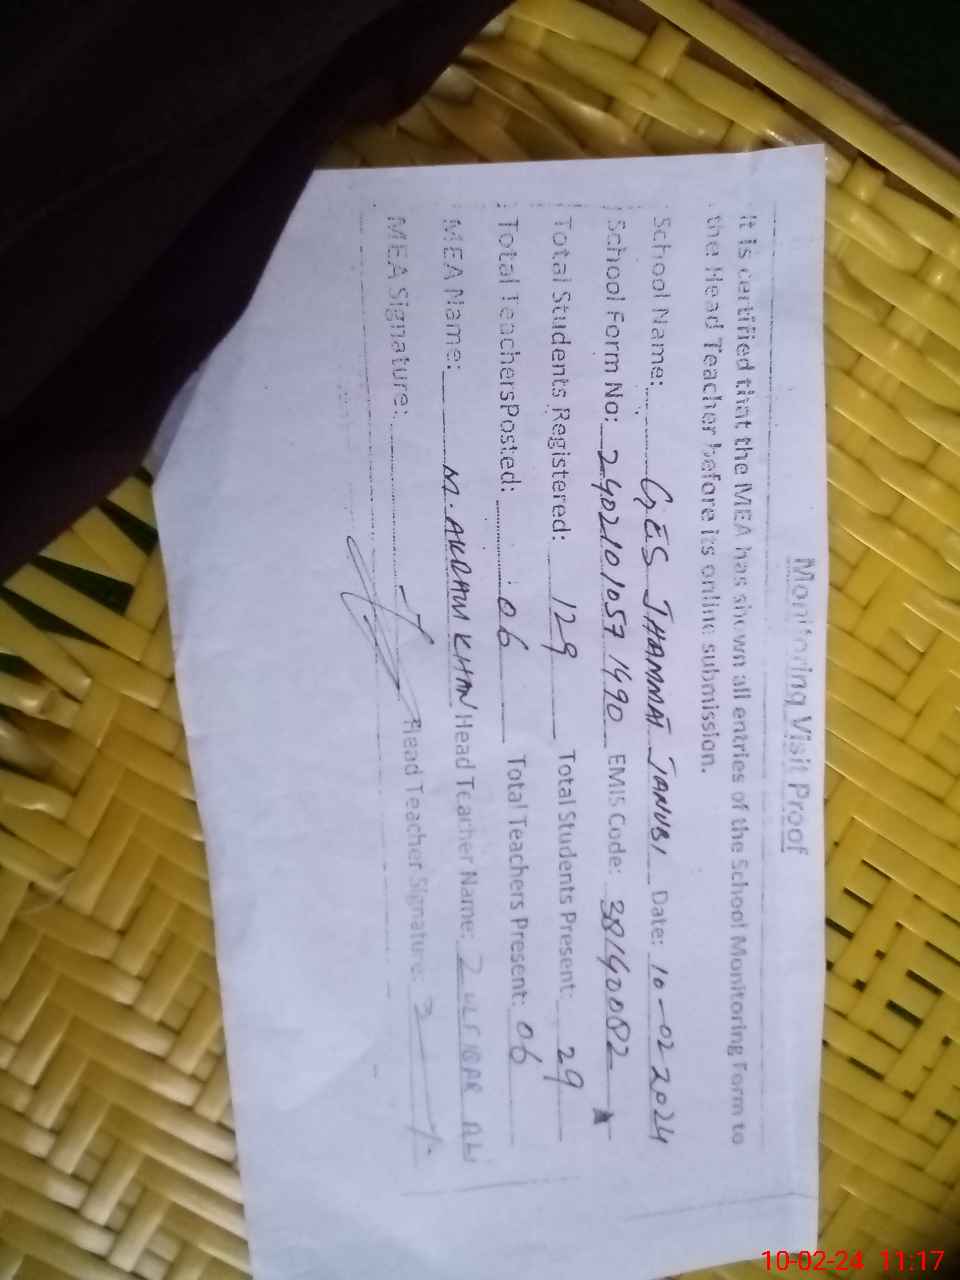 Monitoring Visit Proof
It is certified that the MEA has shown all entries of the School Monitoring Form to
the Head Teacher before its online submission.
School Name: GES JHAMMAT JANUBI Date: 10-02-2024
School Form No: 2402101057 1490 EMIS Code: 38140082
Total Students Registered: 129 Total Students Present: 29
Total TeachersPosted: 06 Total Teachers Present: 06
MEA Name: M. AKRAM KHAN Head Teacher Name: ZULFIQAR ALI
MEA Signature: Head Teacher Signature:
10-02-24 11:17